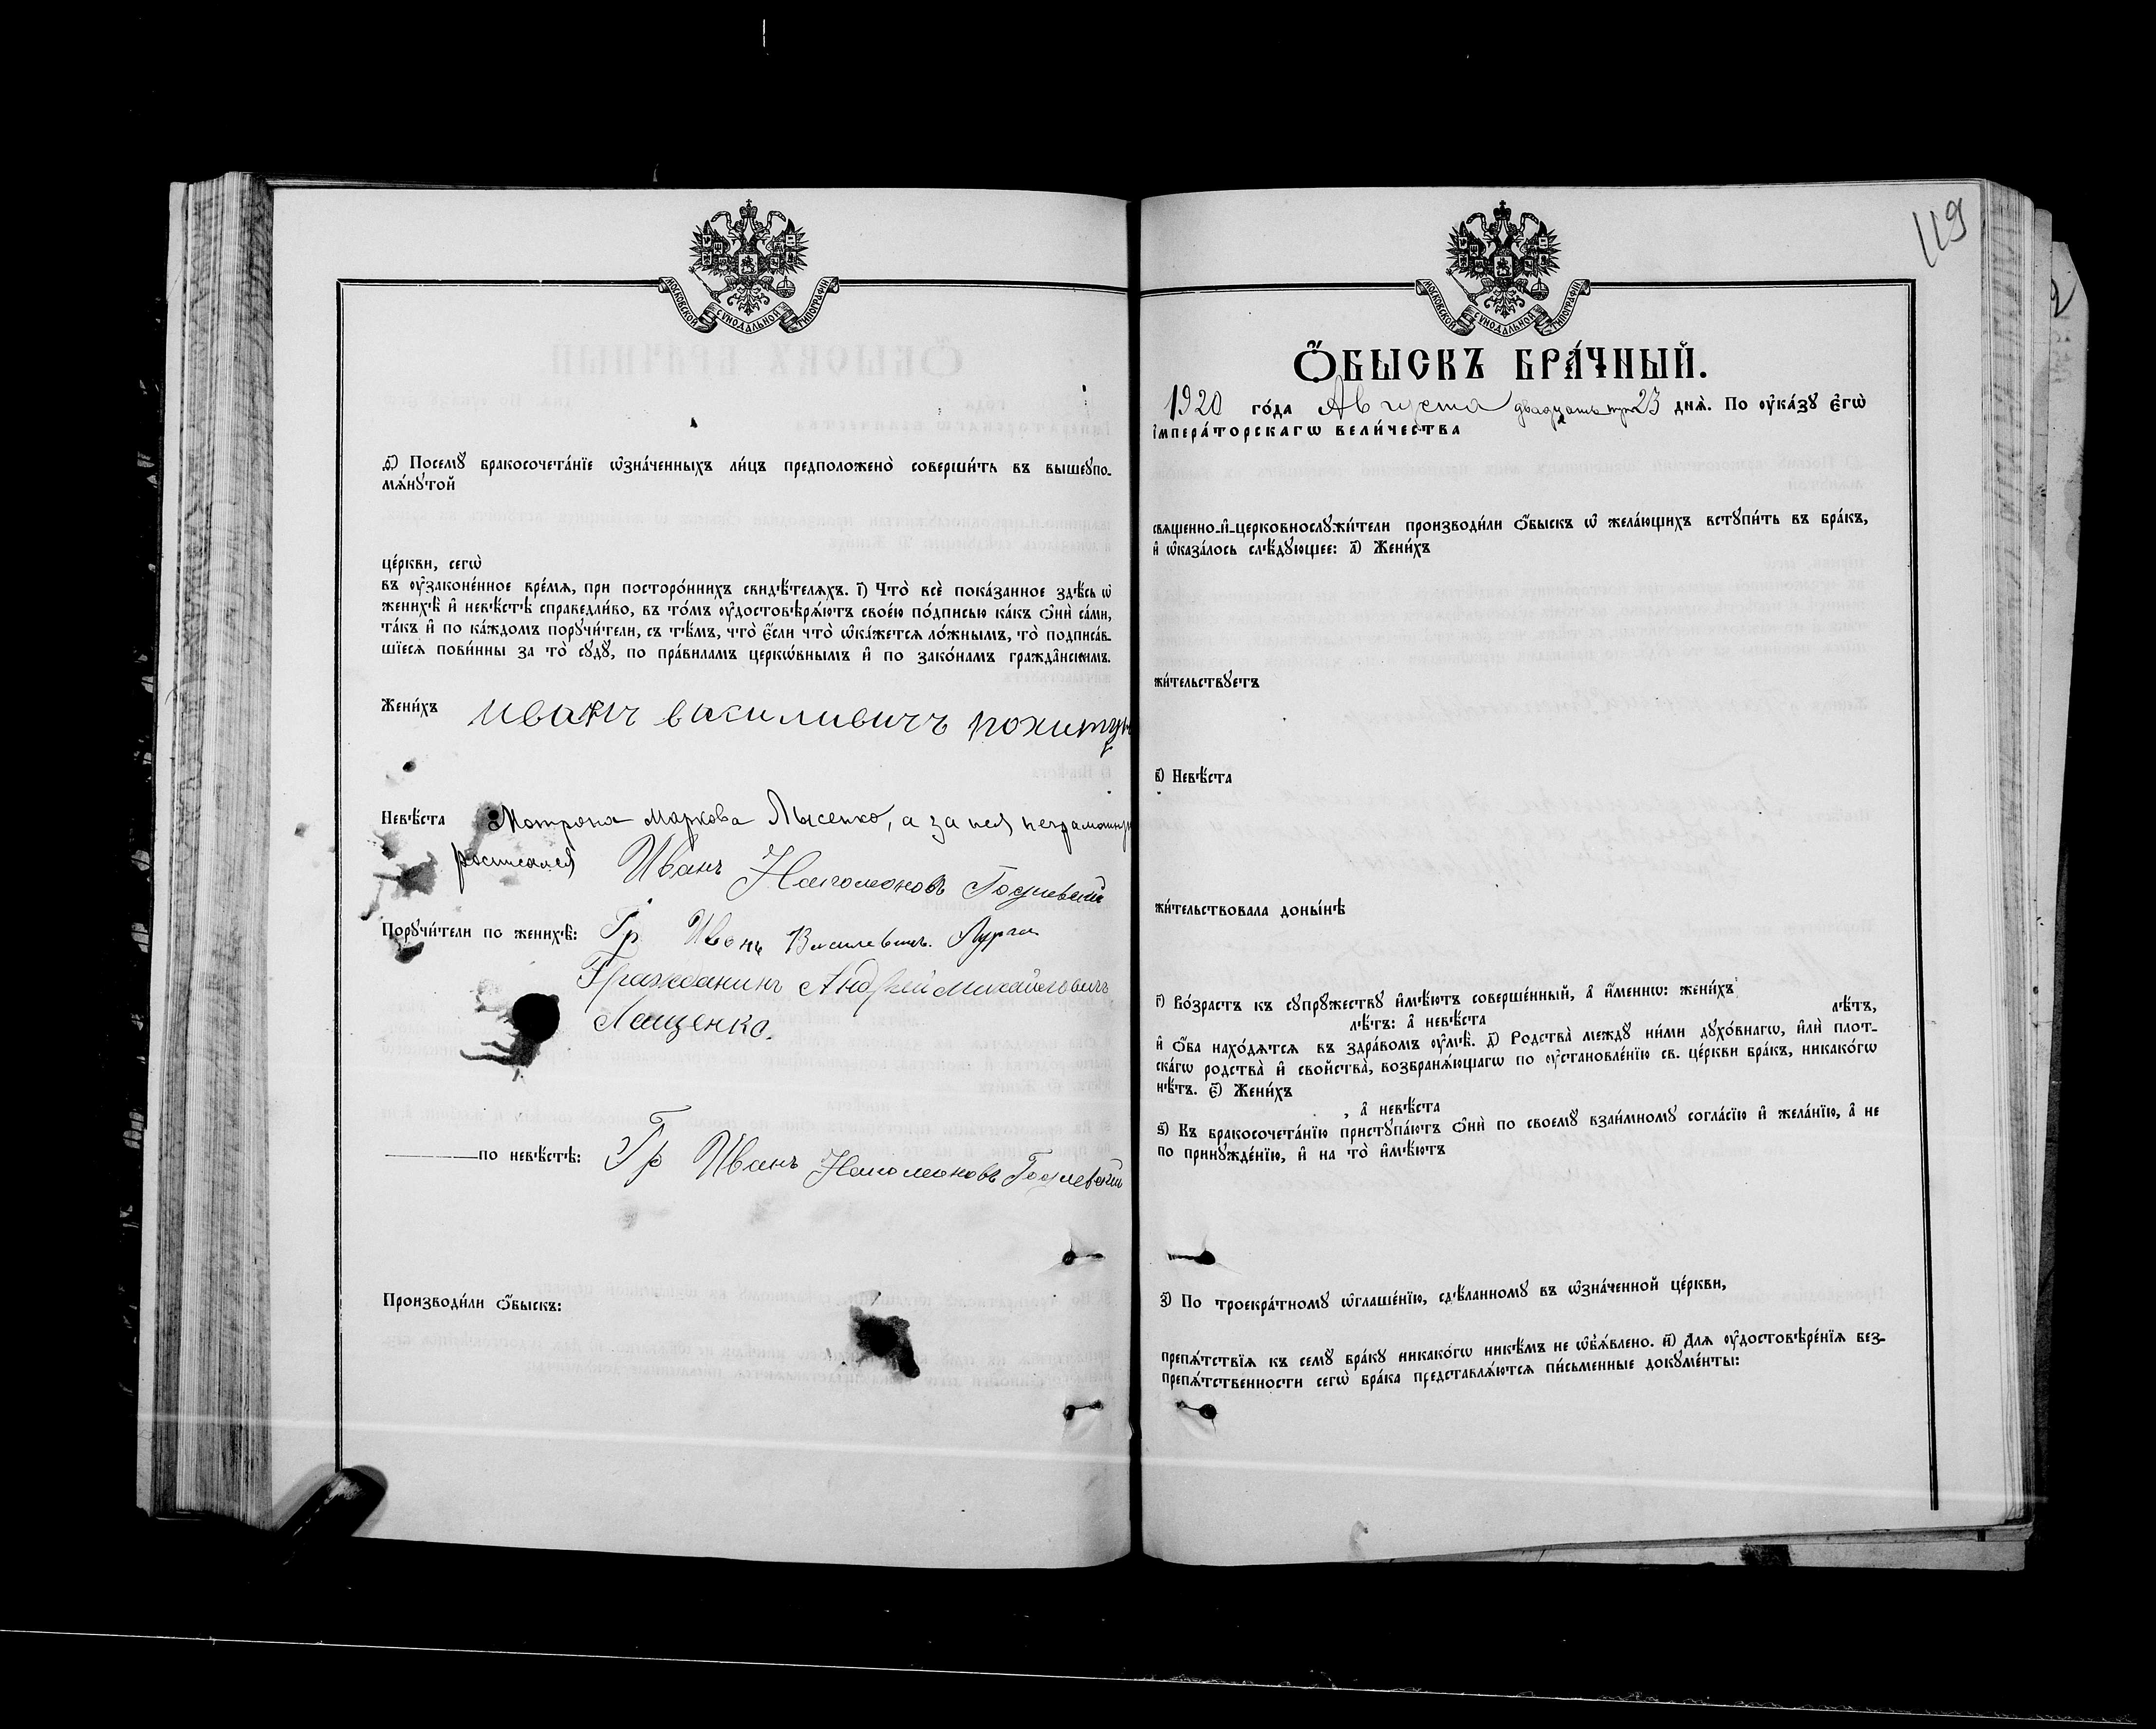 МОСКОВСКОЙ СУНОДАЛЬНОЙ ТИПОГРАФІИ
ѳ҃) Посемꙋ̀ бракосочета́нїе ѡ҆зна́ченныхъ ли́цъ предположено̀ соверши́ть въ вышеꙋпо-
мѧ́нꙋтой
це́ркви, сегѡ̀
въ ᲂу҆законе́нное вре́мѧ, при посторо́ннихъ свидѣ́телѧхъ. і҃) Что̀ всѐ пока́занное здѣ́сь ѡ҆
женихѣ̀ и҆ невѣ́стѣ справедли́во, въ то́мъ ᲂу҆достовѣрѧ́ютъ свое́ю по́дписью ка́къ ѻ҆нѝ са́ми,
та́къ и҆ по ка́ждомъ порꙋчи́тели, съ тѣ́мъ, что̀ є҆́сли что̀ ѡ҆ка́жетсѧ ло́жнымъ, то̀ подписа́в-
шїесѧ пови́нны за то̀ сꙋдꙋ̀, по пра́виламъ церкѡ́внымъ и҆ по зако́намъ гражда́нскимъ.
Жени́хъ Иванъ василивичъ
Невѣ́ста Мотрона Маркова Лысенко, а за нея
росписался Иванъ
Порꙋчи́тели по женихѣ̀: Гр Иванъ Василевичъ.
Гражданинъ Андрей Михайловичъ
Лащенко.
по невѣ́стѣ: Гр Иванъ
Производи́ли ѻ҆́быскъ:
119
МОСКОВСКОЙ СУНОДАЛЬНОЙ ТИПОГРАФІИ
Ѻ҆́БЫСКЪ БРА́ЧНЫЙ.
1920 го́да Августа двадцать три 23 днѧ̀. По ᲂу҆ка́зꙋ є҆гѡ̀
і҆мпера́торскагѡ вели́чества
свѧщенно-и҆-церковнослꙋжи́тели производи́ли ѻ҆́быскъ ѡ҆ жела́ющихъ встꙋпи́ть въ бра́къ,
и҆ ѡ҆каза́лось слѣ́дꙋющее: а҃) Жени́хъ
жи́тельствꙋетъ
в҃) Невѣ́ста
жи́тельствовала доны́нѣ
г҃) Во́зрастъ къ сꙋпрꙋ́жествꙋ и҆мѣ́ютъ соверше́нный, а҆ и҆́меннѡ: жени́хъ
лѣ́тъ,
лѣ́тъ: а҆ невѣ́ста
и҆ ѻ҆́ба нахо́дѧтсѧ въ здра́вомъ ᲂу҆мѣ̀. д҃) Родства̀ междꙋ̀ ни́ми дꙋхо́внагѡ, и҆лѝ плот-
ска́гѡ родства̀ и҆ свойства̀, возбранѧ́ющагѡ по ᲂу҆становле́нїю св. це́ркви бра́къ, никако́гѡ
нѣ́тъ. є҃) Жени́хъ
, а҆ невѣ́ста
ѕ҃) Къ бракосочета́нїю пристꙋпа́ютъ ѻ҆нѝ по своемꙋ̀ взаи́мномꙋ согла́сїю и҆ жела́нїю, а҆ не
по принꙋжде́нїю, и҆ на то̀ и҆мѣ́ютъ
з҃) По троекра́тномꙋ ѡ҆глаше́нїю, сдѣ́ланномꙋ въ ѡ҆зна́ченной це́ркви,
препѧ́тствїѧ къ семꙋ̀ бра́кꙋ никако́гѡ никѣ́мъ не ѡ҆б̾ѧ́влено. и҃) Длѧ ᲂу҆достовѣре́нїѧ без-
препѧ́тственности сегѡ̀ бра́ка представлѧ́ютсѧ пи́сьменные докꙋме́нты: